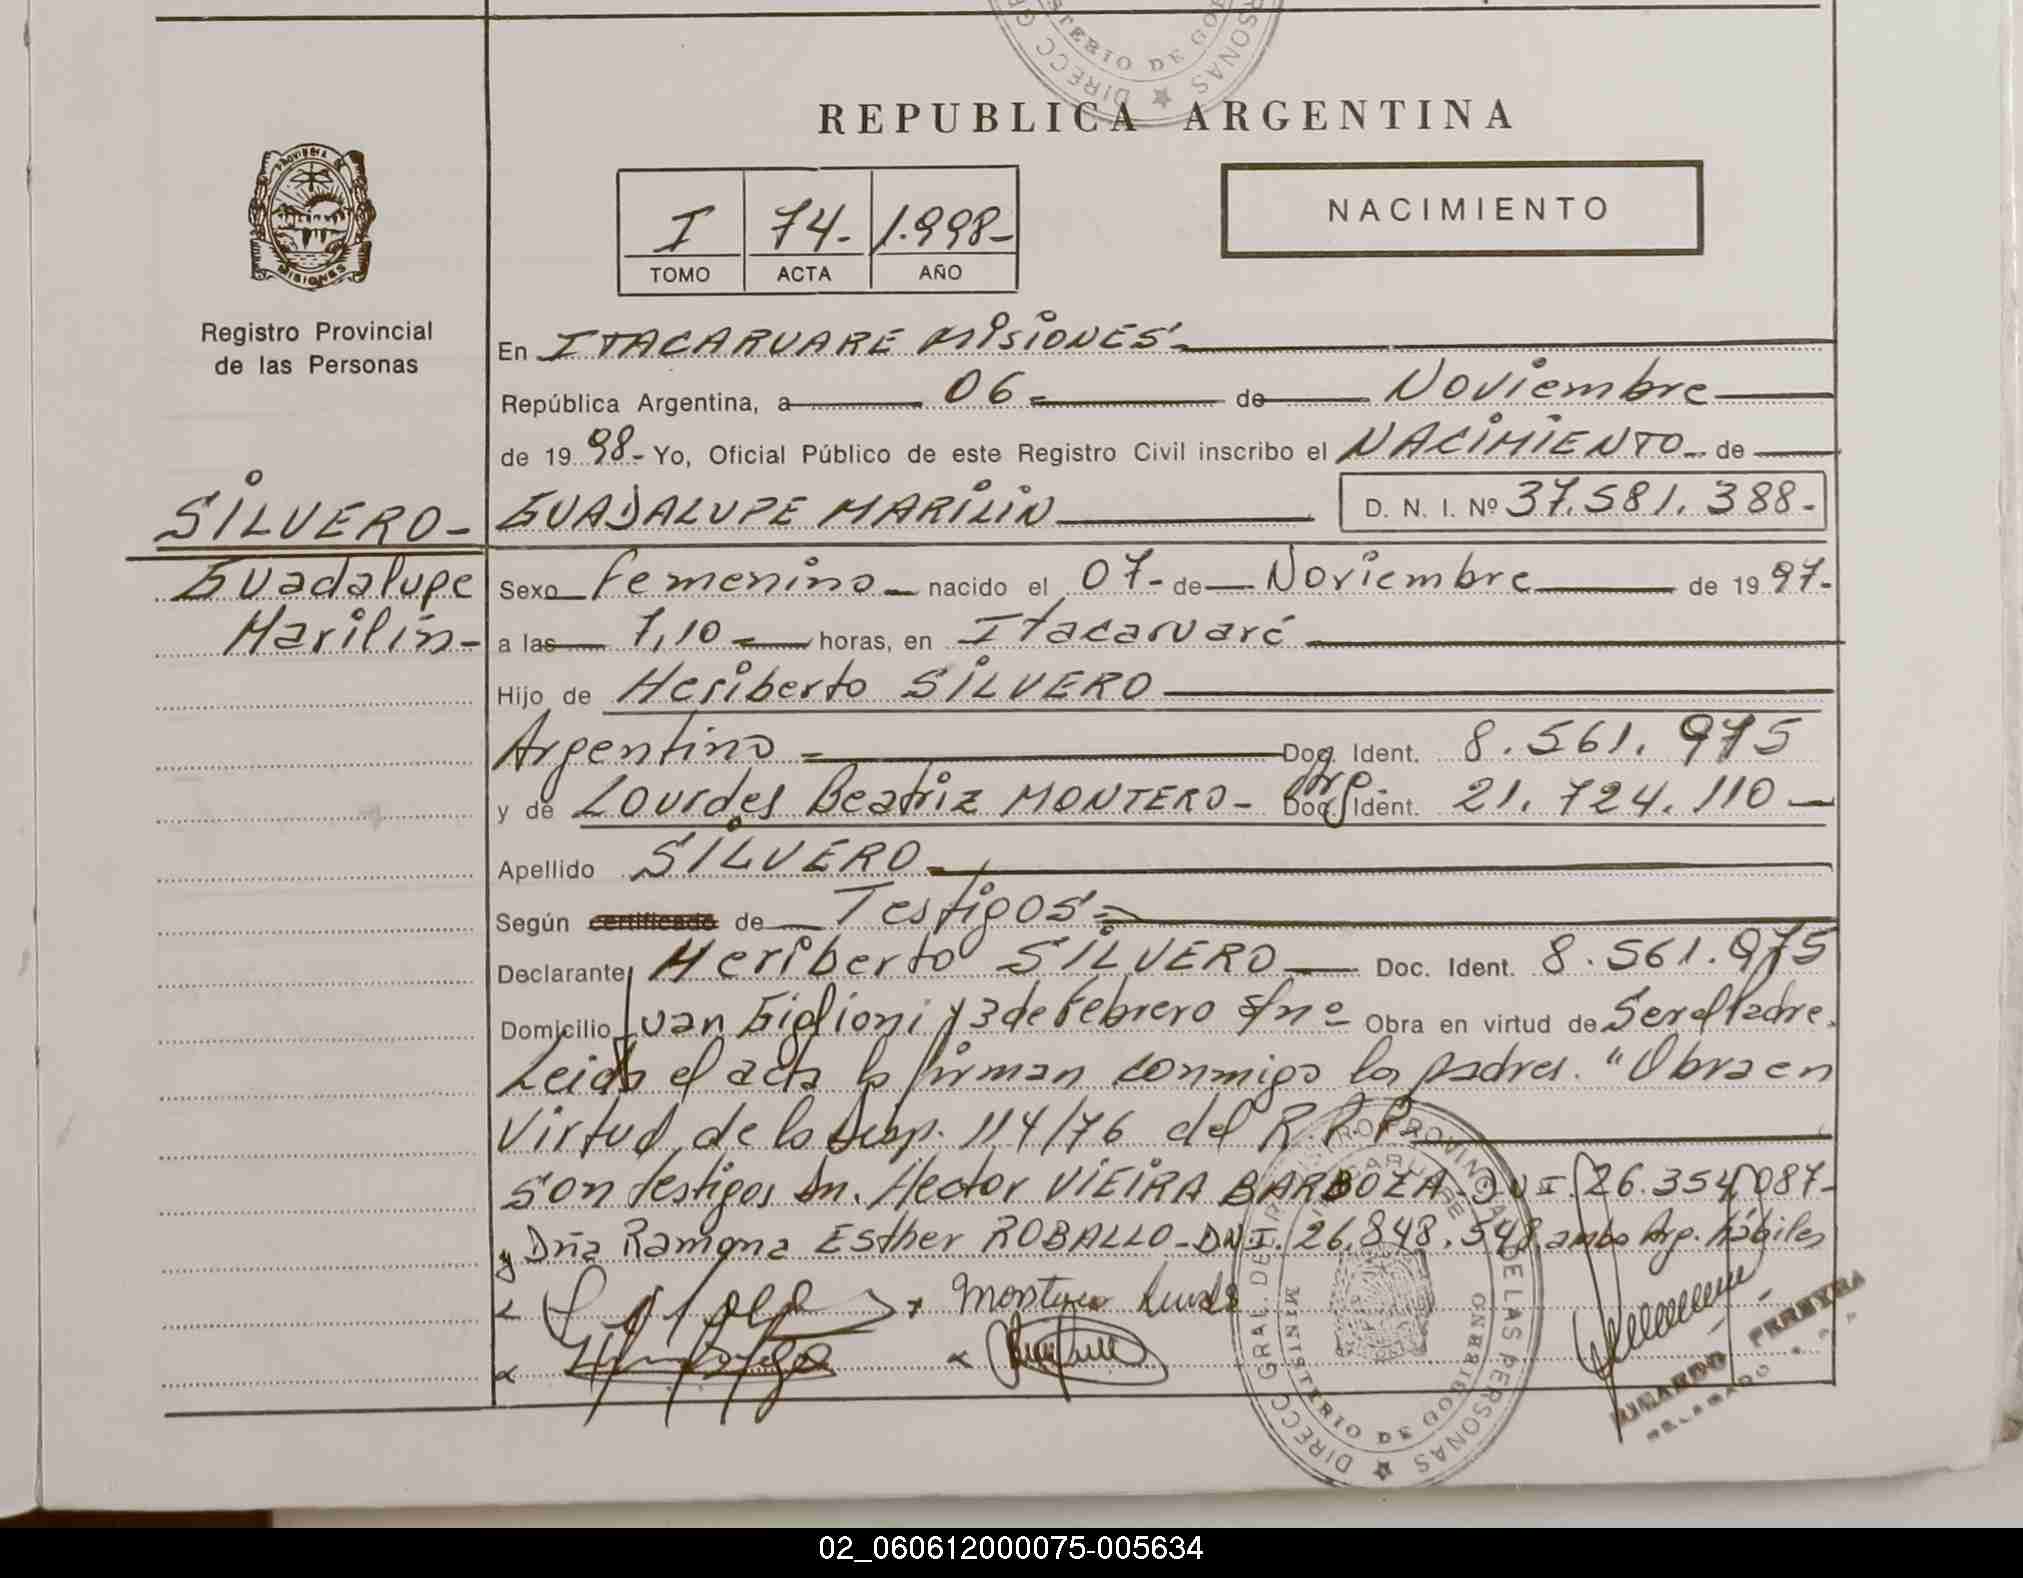 REPUBLICA ARGENTINA
I 74- 1.998-
TOMO ACTA AÑO
NACIMIENTO
PROVINCIA DE MISIONES
Registro Provincial
de las Personas
SILVERO-
Guadalupe
Marilin-
En ITACARUARE MISIONES-
República Argentina, a 06 de Noviembre
de 19 98- Yo, Oficial Público de este Registro Civil inscribo el NACIMIENTO de
GUADALUPE MARILIN D. N. I. Nº 37.581.388-
Sexo Femenino nacido el 07- de Noviembre de 19 97-
a las 7,10 horas, en Itacaruaré
Hijo de Heriberto SILVERO
Argentino Doc. Ident. 8.561.975
y de Lourdes Beatriz MONTERO- Arg. Doc. Ident. 21.724.110
Apellido SILVERO
Según certificado de Testigos
Declarante Heriberto SILVERO Doc. Ident. 8.561.975
Domicilio Juan Giglioni y 3 de Febrero s/nº Obra en virtud de Ser el Padre.
Leida el acta la firman conmigo los padres. "Obra en
Virtud de la Disp. 114/76 del R.P.P.
Son testigos Dn. Hector VIEIRA BARBOZA DNI 26.354.087-
y Dña Ramona Esther ROBALLO- DNI. 26.848.548, ambos Arg. hábiles
Montero
DIRECC GRAL. DEL REGISTRO PROVINCIAL DE LAS PERSONAS
MINISTERIO DE GOBIERNO
PEREYRA
02_060612000075-005634